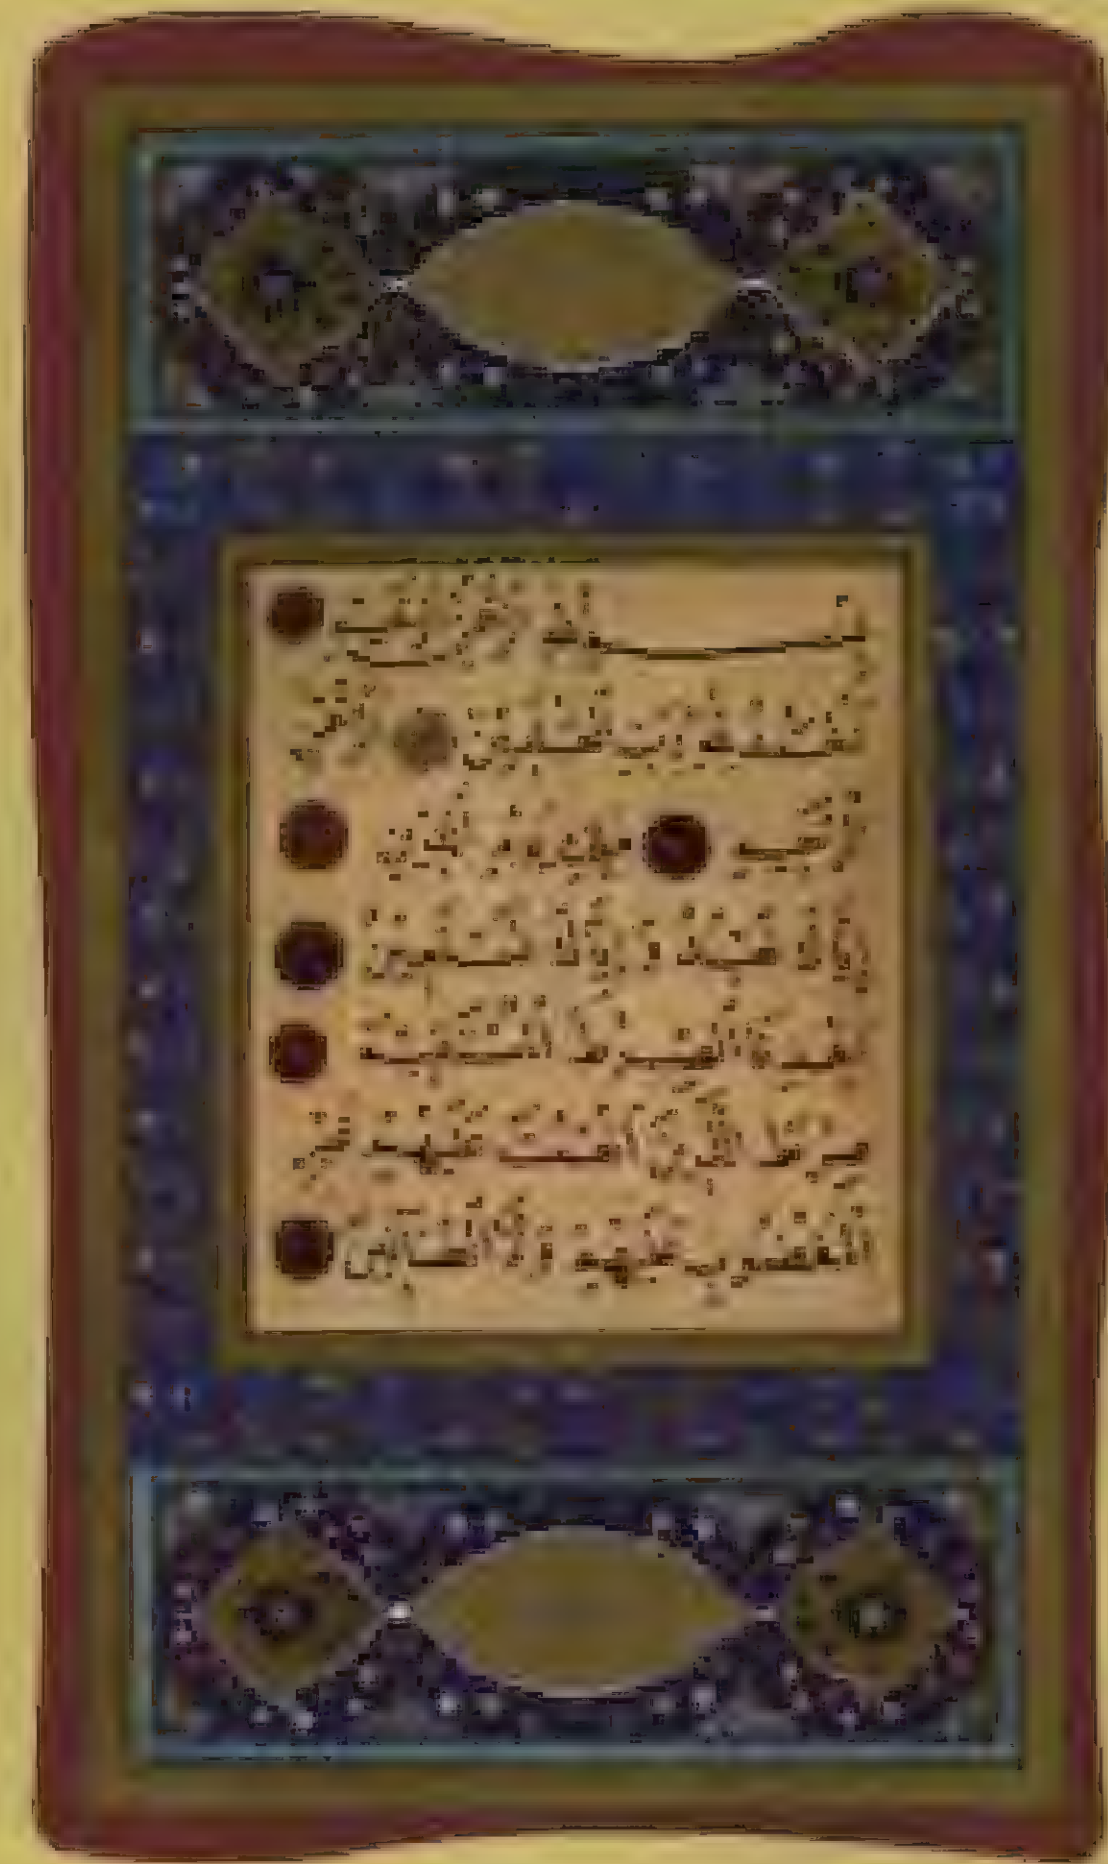 بسم الله الرحمن الرحيم
الحمد لله رب العلمين الرحمن
الرحيم ملك يوم الدين
إياك نعبد وإياك نستعين
اهدنا الصراط المستقيم
صراط الذين أنعمت عليهم غير
المغضوب عليهم ولا الضالين